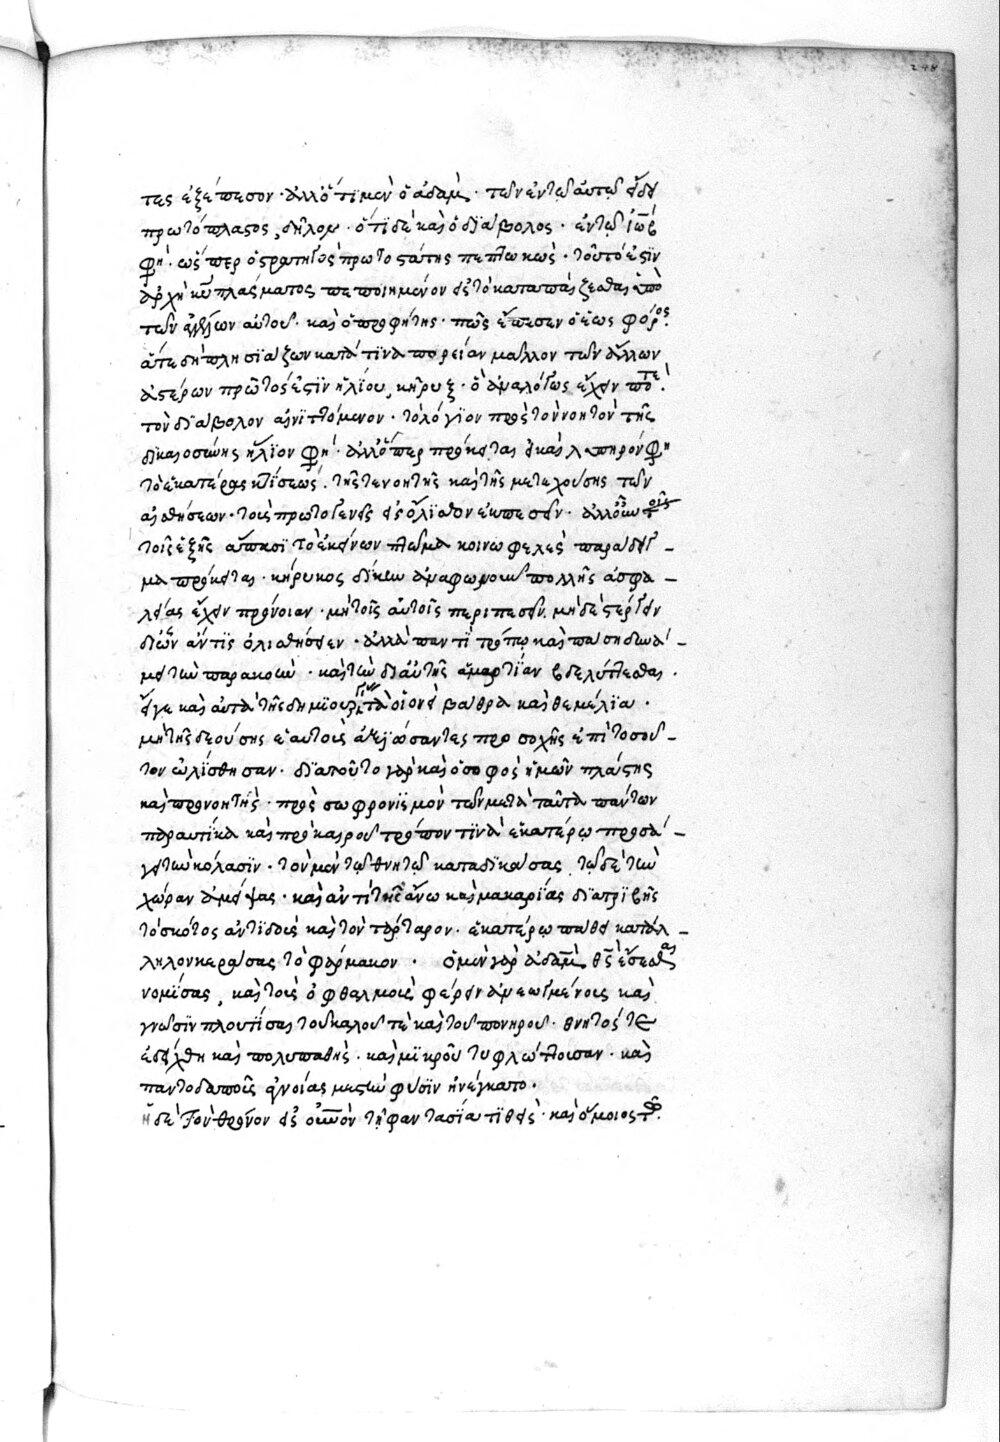 248
τες ἐξέπεσον · ἀλλ' ὅτι μὲν ὁ ἀδὰμ · τῶν ἐν τῷ αὐτῷ εἴδει
πρωτόπλαστος, δῆλον · ὅτι δὲ καὶ ὁ διάβολος · ἐν τῷ ἰὼβ
φη · ὥσπερ ὁ στρατηγὸς πρωτοστάτης πεπτωκώς · τοῦτό ἐστιν
ἀρχὴ κυ πλάσματος πεποιημένον εἰς τὸ καταπαίζεσθαι ὑπὸ
τῶν ἀγγέλων αὐτοῦ · καὶ ὁ προφήτης · πῶς ἔπεσεν ὁ ἑωσφόρος ·
ἅτε δὴ πλησιάζων κατά τινα πορείαν μᾶλλον τῶν ἄλλων
ἀστέρων πρῶτός ἐστιν ἡλίου κῆρυξ · ὃ ἀναλόγως εἶχέν ποτε ·
τὸν διάβολον αἰνιττόμενον · τὸ λόγιον πρὸς τὸν νοητὸν τῆς
δικαιοσύνης ἥλιον φη · ἀλλ' ὅπερ πρόκειται
τὸ ἑκατέρας κτίσεως · τῆς τε νοητῆς καὶ τῆς μετεχούσης τῶν
αἰσθήσεων · τοὺς πρωτογενεῖς εἰς ὄλισθον ἐκπεσεῖν · ἀλλ'
τοῖς ἑξῆς ἅπασι τὸ ἐκείνων πτῶμα κοινωφελὲς παράδειγ-
μα πρόκειται · κήρυκος δίκην ἀναφωνοῦν πολλῆς ἀσφα-
λείας ἔχειν πρόνοιαν · μὴ τοῖς αὐτοῖς περιπεσεῖν · μηδὲ στέργειν
δι' ὧν ἄν τις ὀλισθήσειεν · ἀλλὰ παντὶ τρόπῳ καὶ πάσῃ δυνά-
μει τὴν παρακοὴν · καὶ τὴν δι' αὐτῆς ἁμαρτίαν βδελύττεσθαι ·
εἴγε καὶ αὐτὰ τῆς δημιουργίας τὰ οἱονεὶ βάθρα καὶ θεμέλια ·
μὴ τῆς δεούσης ἑαυτοὺς ἀξιώσαντες προσοχῆς ἐπὶ τοσοῦ-
τον ὠλίσθησαν · διὰ τοῦτο γὰρ καὶ ὁ σοφὸς ἡμῶν πλάστης
καὶ προνοητὴς · πρὸς σωφρονισμὸν τῶν μετὰ ταῦτα πάντων
παραυτίκα καὶ πρὸ καιροῦ τρόπον τινὰ ἑκατέρῳ προσά-
γει τὴν κόλασιν · τὸν μὲν τῷ θνητῷ καταδικάσας τῷ δὲ τὴν
χώραν ἀμείψας · καὶ ἀντὶ τῆς ἄνω καὶ μακαρίας διατριβῆς
τὸ σκότος ἀντιδοὺς καὶ τὸν τάρταρον · ἑκατέρῳ πάθει κατάλ-
ληλον κεράσας τὸ φάρμακον · ὁ μὲν γὰρ ἀδὰμ θς ἔσεσθαι
νομίσας, καὶ τοὺς ὀφθαλμοὺς φέρειν ἀνεῳγμένους καὶ
γνῶσιν πλουτίσας τοῦ καλοῦ τὲ καὶ τοῦ πονηροῦ · θνητός τε
ἐδείχθη καὶ πολυπαθὴς · καὶ μικροῦ τυφλώττουσαν · καὶ
παντοδαποῖς ἀγνοίας μεστὴν φύσιν ἠνέγκατο ·
ἢ δὲ τὸν θρόνον εἰς οὐνὸν τῇ φαντασίᾳ τιθεὶς · καὶ ὅμοιος τῷ